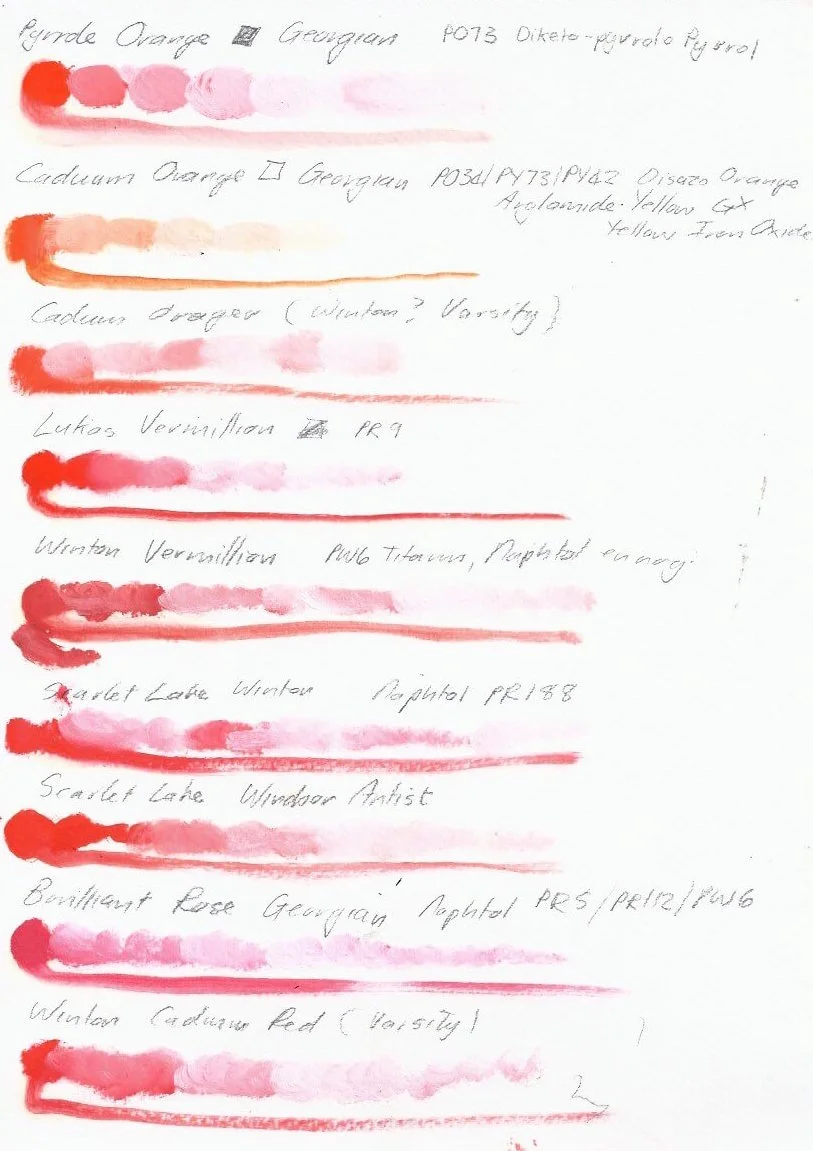 Pyrrole Orange Georgian PO73 Diketo-pyrrolo Pyrrol
Caduum Orange Georgian PO34/PY73/PY42 Disazo Orange
Arylamide Yellow GX
Yellow Iron Oxide
Cadium Orange (Winton? Varsity)
Lukas Vermillion PR9
Winton Vermillion PW6 Titanium, Naphtol
Scarlet Lake Winton Naphtol PR188
Scarlet Lake Windsor Artist
Brilliant Rose Georgian Naphtol PR5/PR112/PW6
Winton Caduum Red (Varsity)